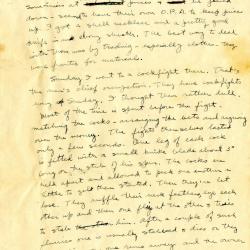 Sometimes at
down & send to have their own O.P.A. to keep price
up. I got a shell necklace and a pretty good
knife in a ebony sheath. The best way to deal
with them was by trading - especially clothes. They
were frantic for materials.
Sunday I went to a cockfight there. That's
the men's chief occupation. They have cockfights
every Sunday. I thought them rather dull.
Most of the time is spent before the fight.
matching the cocks - arranging the bets and arguing
over the money. The fights themselves lasted
only a few seconds. One leg of each cock
is fitted with a small knife (blade about 3"
long on the style of his spur. The cocks are
held apart and allowed to peck one another a
little to get them started. Then they're let
loose. They ruffle their neck feathers eye each
other up and then one flies at the other & tries
to stab him. After a couple of such
flurries one is usually stabbed & dies or they
one runs away and the owner